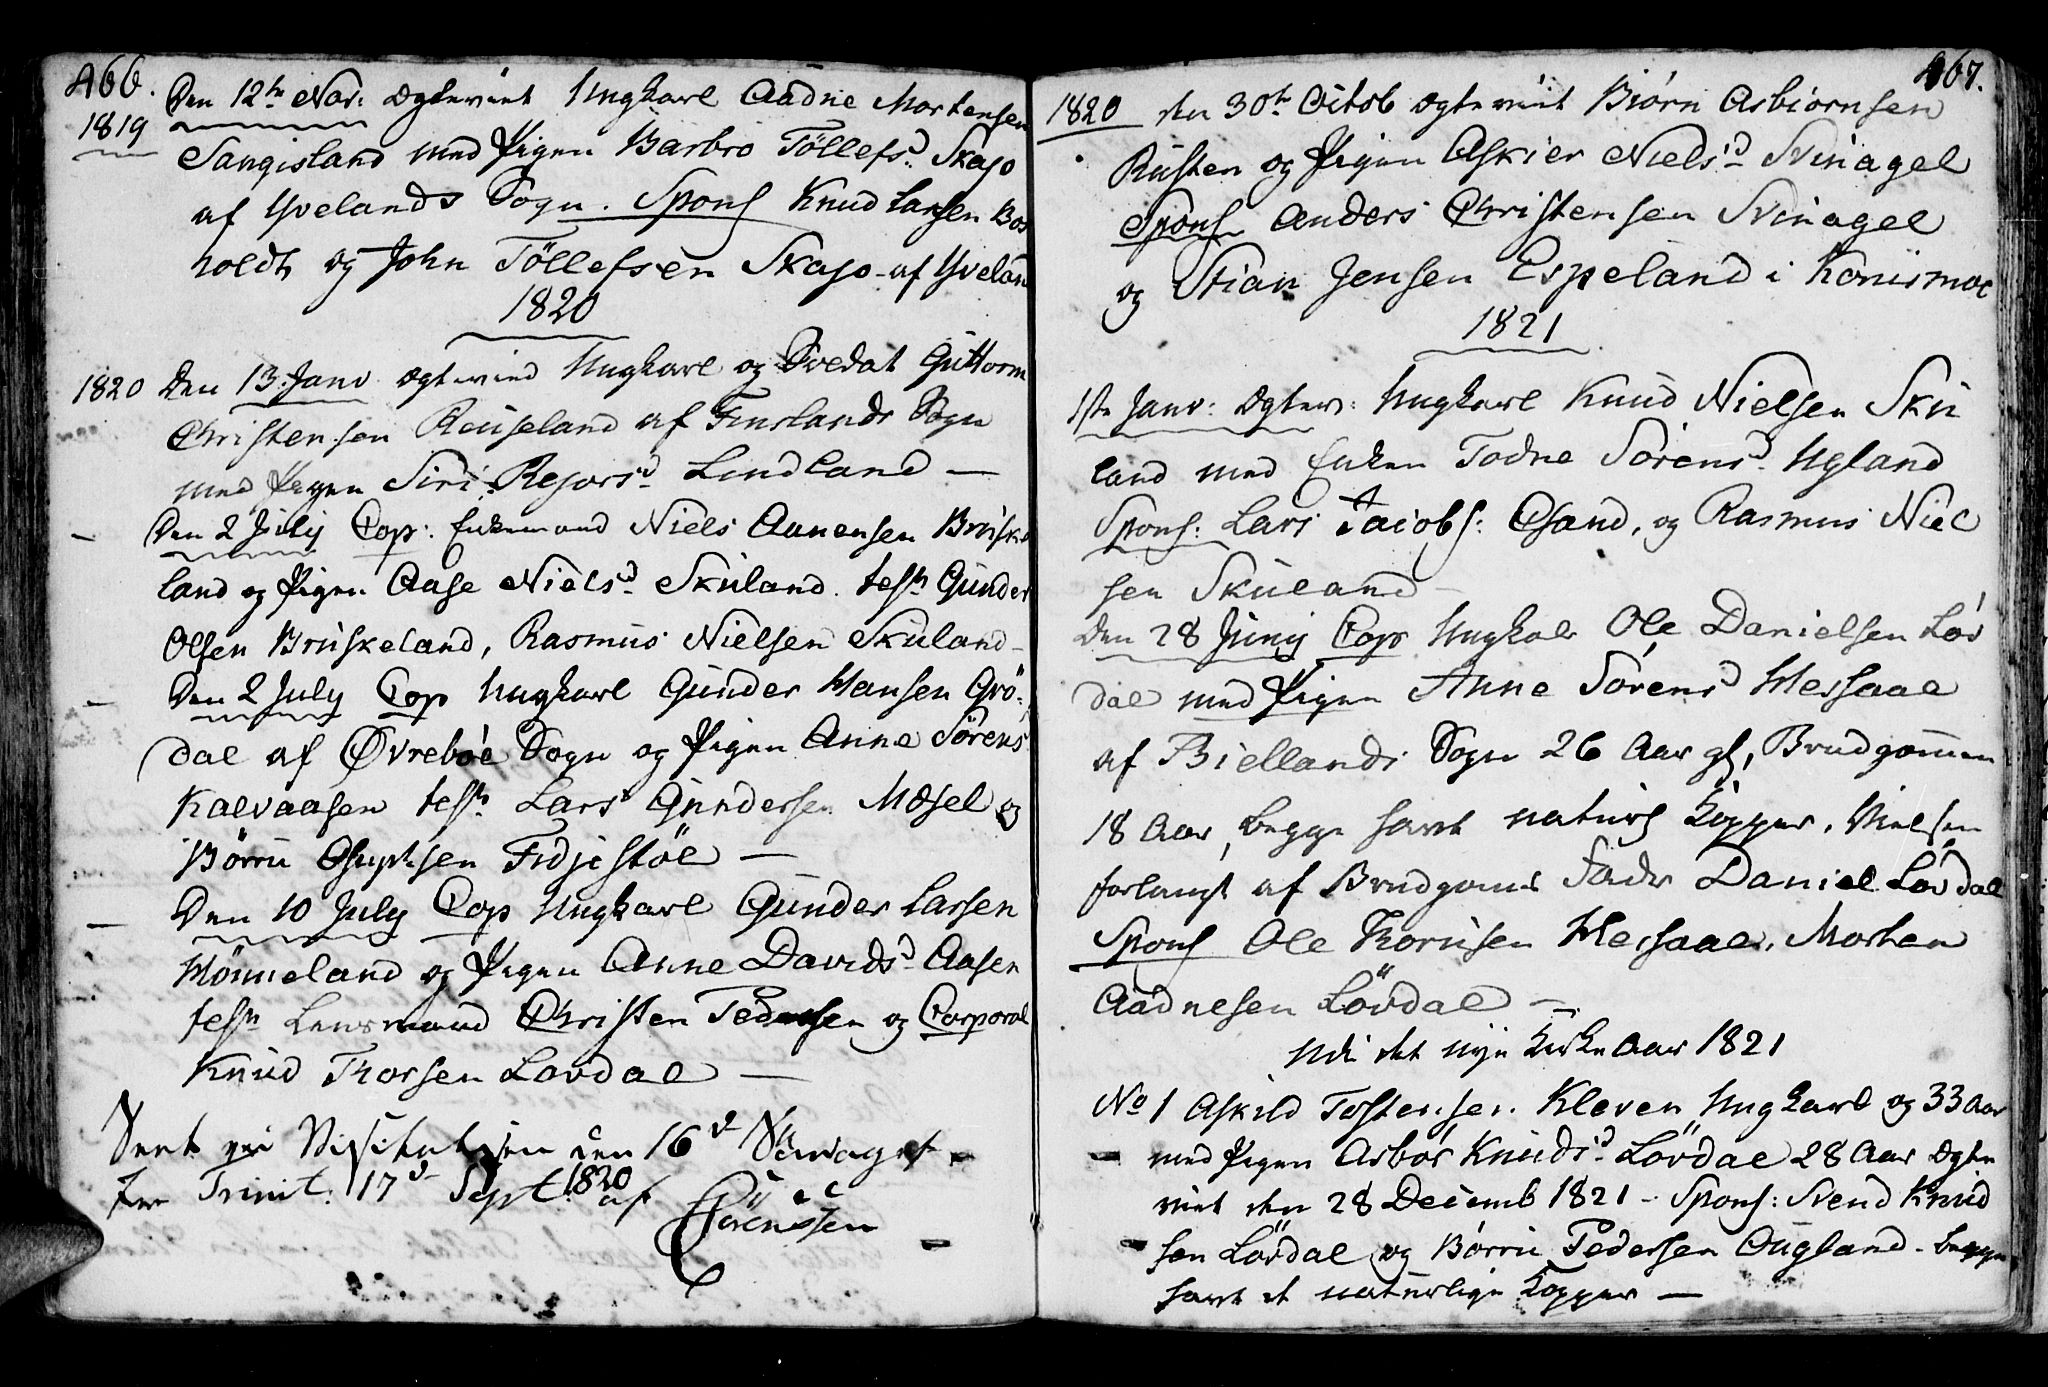 466.
Den 12te Nov: Ægteviet Ungkarl Aadne Mortensen
1819
Sangisland med Pigen Barbro Töllefsd. Skajo
af Yvelands Sogn. Spons Knud Larsen Bos
holdt og John Töllefsen Skajo af Yveland
1820
1820 Den 13. Janv Ægtevied Ungkarl og Svedat Guttorm
Christensen Reuseland af Finslands Sogn
med Pigen Siri Rejersd. Lindland —
Den 2 July Cop: Enkemand Niels Aanensen Bruske
land og Pigen Aase Nielsd. Skuland. test. Gunder
Olsen Bruskeland, Rasmus Nielsen Skuland –
Den 2 July Cop Ungkarl Gunder Hansen Grö-
dal af Øvreböe Sogn og Pigen Anne Sörens
Kalvaasen test. Lars Gundersen Mæsel og
Börru Fidjestöl —
Den 10 July Cop Ungkarl Gunder Larsen
Hönneland og Pigen Anne Davidsd. Aasen
test. Lensmand Christen Pedersen og Corporal
Knud Thorsen Lovdal —
Seet ved Visitatsen den 16d
Trinit: 17d Sept. 1820 af
Sörenssen
467.
1820 den 30te Octob Ægteviet Biörn Asbiörnsen
Rusten og Pigen Askier Nielsd. Svinagel
Spons Anders Christensen Svinagel
og Stian Jensen Espeland i Konismoe
1821
1ste Janv: Ægtev: Ungkarl Knud Nielsen Sku
land med Enken Todne Sörensd. Ugland
Spons: Lars Jacobs: Øsand, og Rasmus Niel
sen Skuland –
Den 28 Junij Cop Ungkarl Ole Danielsen Löv
dal med Pigen Anne Sörensd Hessaae
af Biellands Sogn 26 Aar gl, Brudgommen
18 Aar, begge havt naturl Kopper. Vielsen
forlangt af Brudgoms Fader Daniel Lövdal
Spons Ole Thorusen Hessaae, Morten
Aadnesen Lövdal —
Udi det nye Kirke Aar 1821
No 1 Askild Tostensen Kleven Ungkarl og 33 Aar
med Pigen Asbör Knudsd. Lövdal 28 Aar Ægte
viet den 28 Decemb 1821 – Spons: Svend Knud
sen Lövdal og Börru Pedersen Ougland – begge
havt d naturlige Kopper —